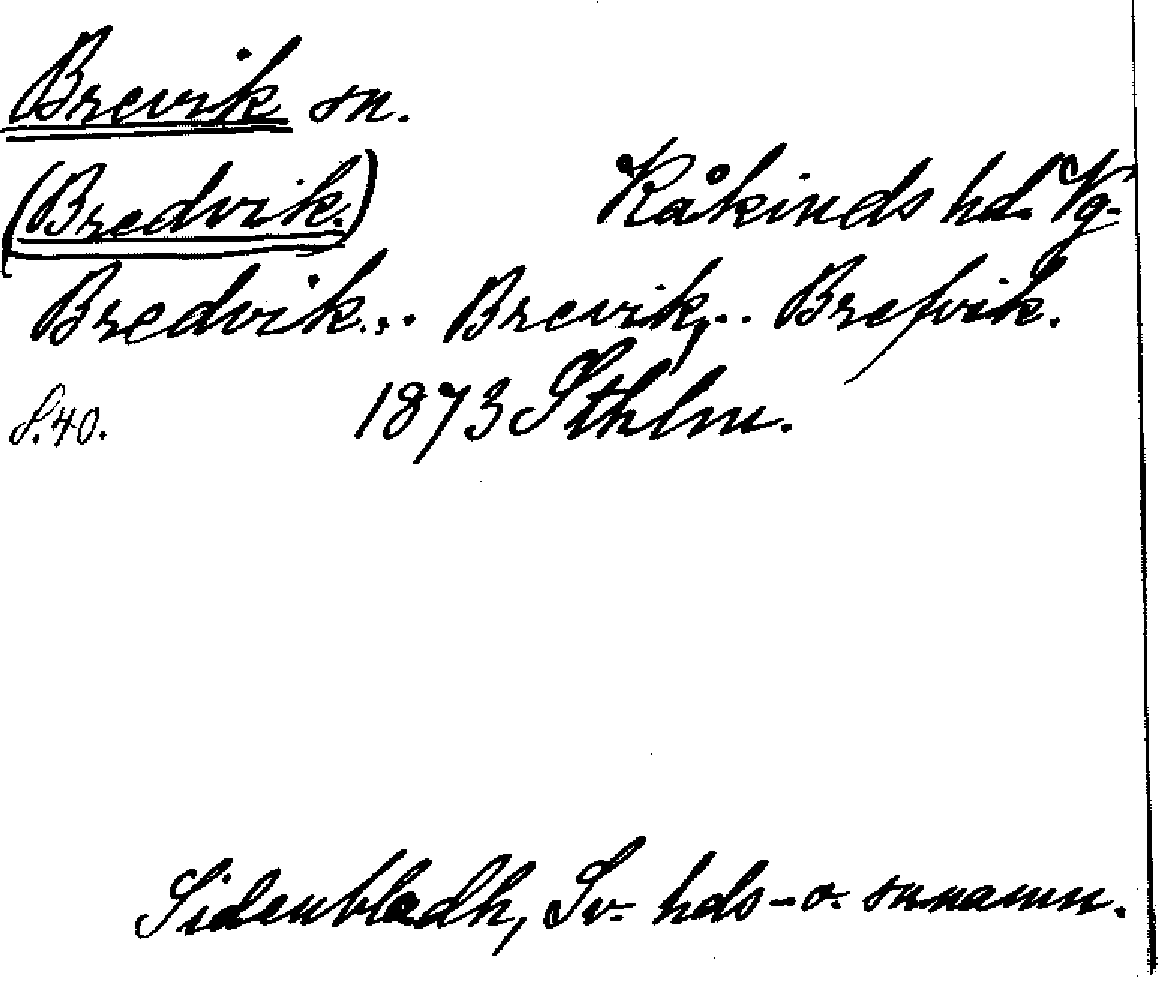 Brevik sn.
(Bredvik.) Kåkinds hd. Vg.
Bredvik... Brevik,... Brefvik.
S.40. 1873 Sthlm.
Sidenbladh, Sv. hds- o. snnamn.